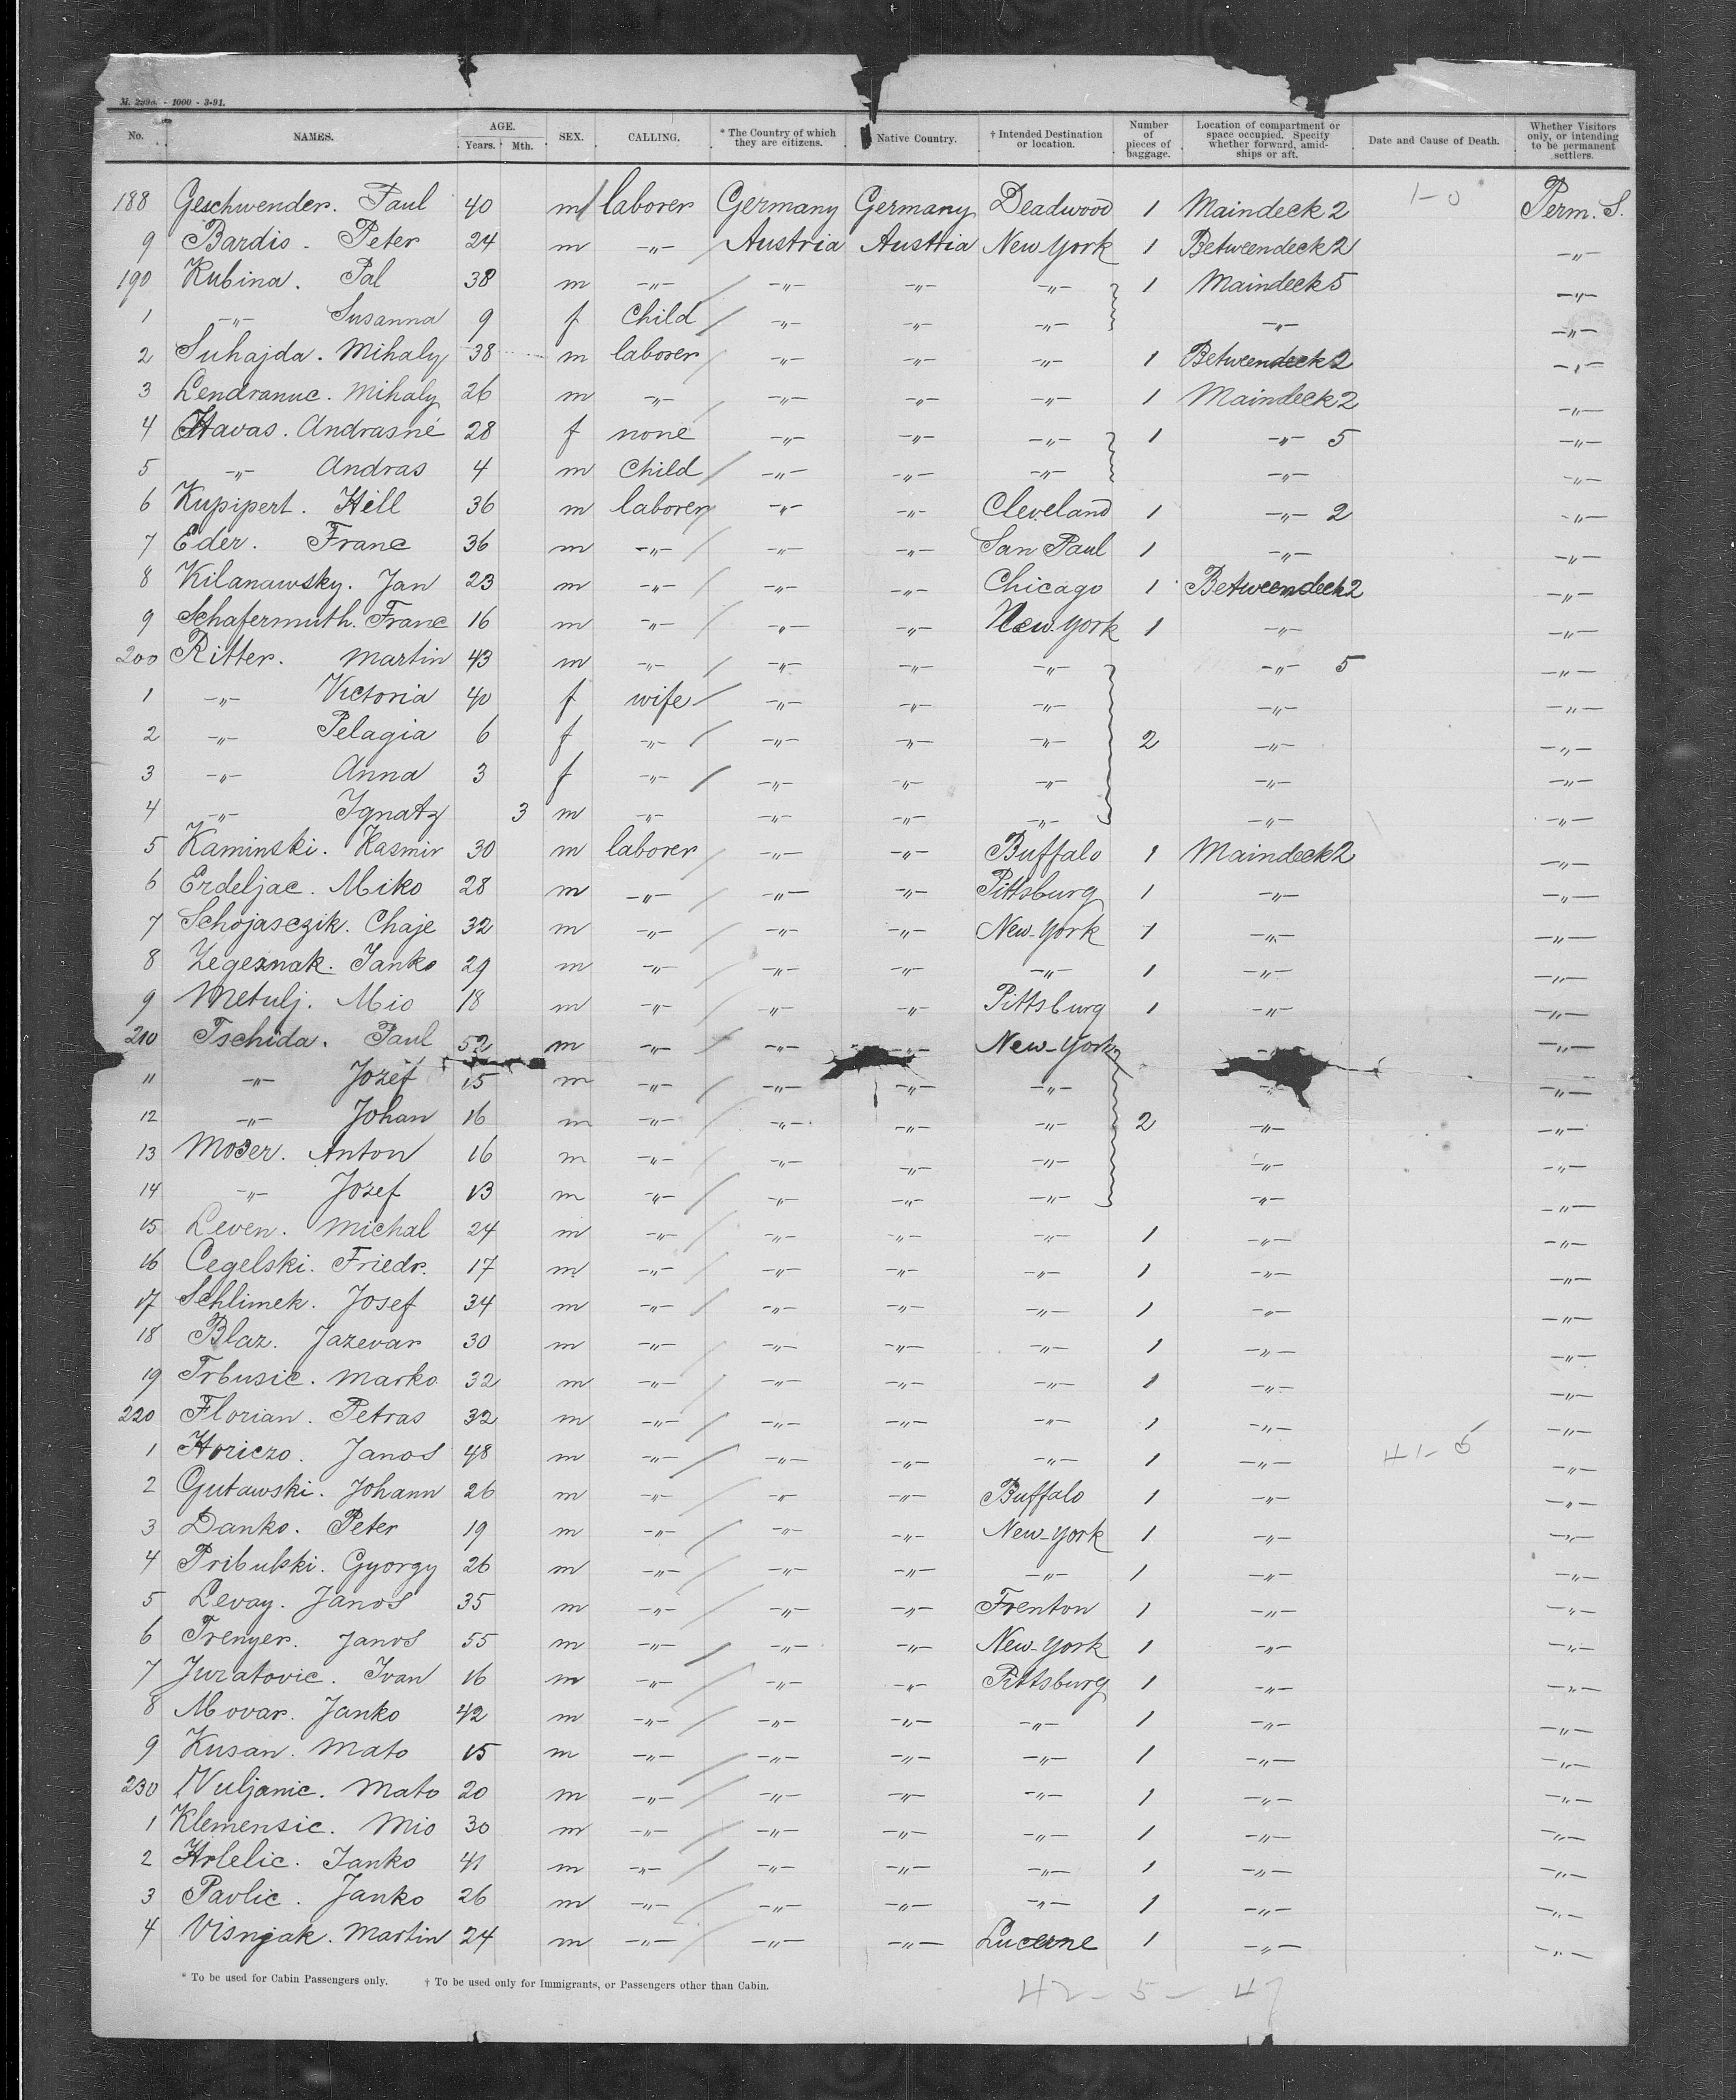 M. 2998. - 1000 - 3-91.
No. NAMES. AGE. Years. Mth. SEX. CALLING. * The Country of which they are citizens. Native Country. † Intended Destination or location. Number of pieces of baggage. Location of compartment or space occupied. Specify whether forward, amid-ships or aft. Date and Cause of Death. Whether Visitors only, or intending to be permanent settlers.
188 Geschwender. Paul 40 m laborer Germany Germany Deadwood 1 Maindeck 2 1-0 Perm. S.
9 Bardis. Peter 24 m -"- Austria Austria New York 1 Betweendeck 2 -"-
190 Kubina. Pal 38 m -"- -"- -"- -"- 1 Maindeck 5 -"-
1 -"- Susanna 9 f Child -"- -"- -"- -"- -"-
2 Suhajda. Mihaly 38 m laborer -"- -"- -"- 1 Betweendeck 2 -"-
3 Lendranuc. Mihaly 26 m -"- -"- -"- -"- 1 Maindeck 2 -"-
4 Havas. Andrasné 28 f none -"- -"- -"- 1 -"- 5 -"-
5 -"- Andras 4 m Child -"- -"- -"- -"- -"-
6 Kupipert. Hill 36 m laborer -"- -"- Cleveland 1 -"- 2 -"-
7 Eder. Franc 36 m -"- -"- -"- San Paul 1 -"- -"-
8 Kilanawsky. Jan 23 m -"- -"- -"- Chicago 1 Betweendeck 2 -"-
9 Schafermuth. Franc 16 m -"- -"- -"- New York 1 -"- -"-
200 Ritter. Martin 43 m -"- -"- -"- -"- -"- 5 -"-
1 -"- Victoria 40 f wife -"- -"- -"- -"- -"-
2 -"- Pelagia 6 f -"- -"- -"- -"- 2 -"- -"-
3 -"- Anna 3 f -"- -"- -"- -"- -"- -"-
4 -"- Ignatz 3 m -"- -"- -"- -"- -"- -"-
5 Kaminski. Kasmir 30 m laborer -"- -"- Buffalo 1 Maindeck 2 -"-
6 Erdeljac. Miko 28 m -"- -"- -"- Pittsburg 1 -"- -"-
7 Schojasczik. Chaje 32 m -"- -"- -"- New-York 1 -"- -"-
8 Zegesnak. Janko 29 m -"- -"- -"- -"- 1 -"- -"-
9 Metulj. Mio 18 m -"- -"- -"- Pittsburg 1 -"- -"-
210 Tschida. Paul 52 m -"- -"- -"- New-York -"-
11 -"- Jozef 15 m -"- -"- -"- -"- -"- -"-
12 -"- Johan 16 m -"- -"- -"- -"- 2 -"- -"-
13 Moser. Anton 16 m -"- -"- -"- -"- -"- -"-
14 -"- Jozef 13 m -"- -"- -"- -"- -"- -"-
15 Leven. Michal 24 m -"- -"- -"- -"- 1 -"- -"-
16 Cegelski. Friedr. 17 m -"- -"- -"- -"- 1 -"- -"-
17 Schlimek. Josef 34 m -"- -"- -"- -"- 1 -"- -"-
18 Blaz. Jazevar 30 m -"- -"- -"- -"- 1 -"- -"-
19 Trbusic. Marko 32 m -"- -"- -"- -"- 1 -"- -"-
220 Florian. Petras 32 m -"- -"- -"- -"- 1 -"- -"-
1 Horiczo. Janos 48 m -"- -"- -"- -"- 1 -"- 41-5 -"-
2 Gutawski. Johann 26 m -"- -"- -"- Buffalo 1 -"- -"-
3 Danko. Peter 19 m -"- -"- -"- New-York 1 -"- -"-
4 Pribulski. Gyorgy 26 m -"- -"- -"- -"- 1 -"- -"-
5 Levay. Janos 35 m -"- -"- -"- Trenton 1 -"- -"-
6 Trenyer. Janos 55 m -"- -"- -"- New-York 1 -"- -"-
7 Juratovic. Ivan 16 m -"- -"- -"- Pittsburg 1 -"- -"-
8 Movar. Janko 42 m -"- -"- -"- -"- 1 -"- -"-
9 Kusan. Mato 15 m -"- -"- -"- -"- 1 -"- -"-
230 Vuljanic. Mato 20 m -"- -"- -"- -"- 1 -"- -"-
1 Klemensic. Mio 30 m -"- -"- -"- -"- 1 -"- -"-
2 Hrlelic. Janko 41 m -"- -"- -"- -"- 1 -"- -"-
3 Pavlic. Janko 26 m -"- -"- -"- -"- 1 -"- -"-
4 Visnjak. Martin 24 m -"- -"- -"- Lucerne 1 -"- -"-
* To be used for Cabin Passengers only. † To be used only for Immigrants, or Passengers other than Cabin.
42 - 5 - 47